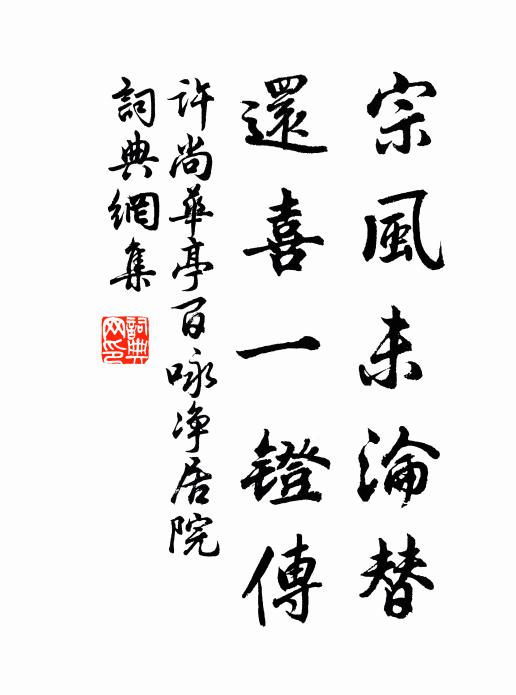 宗風未淪替
還喜一鐙傳
許尚華亭百咏净居院
詞典網集
詞典網印